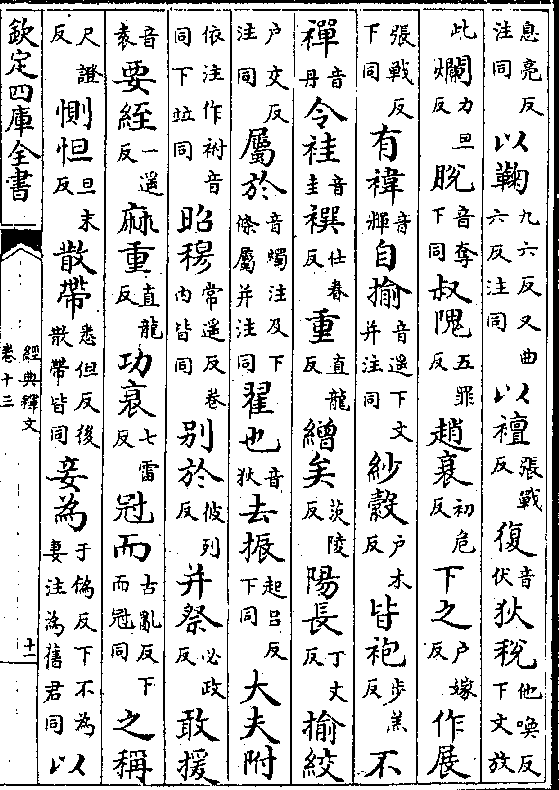 息亮反注同以鞠九六反又曲六反注同以襢張戰反復音伏狄稅他喚反下文放
此爛力旦反脫音奪下同叔隗五罪反趙衰初危反下之戶嫁反作展
張戰反下同有褘音輝自揄音遥下文并注同紗縠戶木反皆袍步羔反不
襌音丹令袿音圭襈仕眷反重直龍反繒矣茨陵反陽長丁丈反揄絞
户交反注同屬於音燭注及下條屬并注同翟也音狄去振起吕反下同大夫附
依注作祔音同下竝同昭穆常遥反卷内皆同别於彼列反并祭必政反敢援
音袁要絰一遥反麻重直龍反功衰七雷反冠而古亂反下而冠同之稱
尺證反惻怛旦末反散帶悉但反後散帶皆同妾為于偽反下不為妻注為舊君同以
欽定四庫全書
經典釋文
卷十三
十